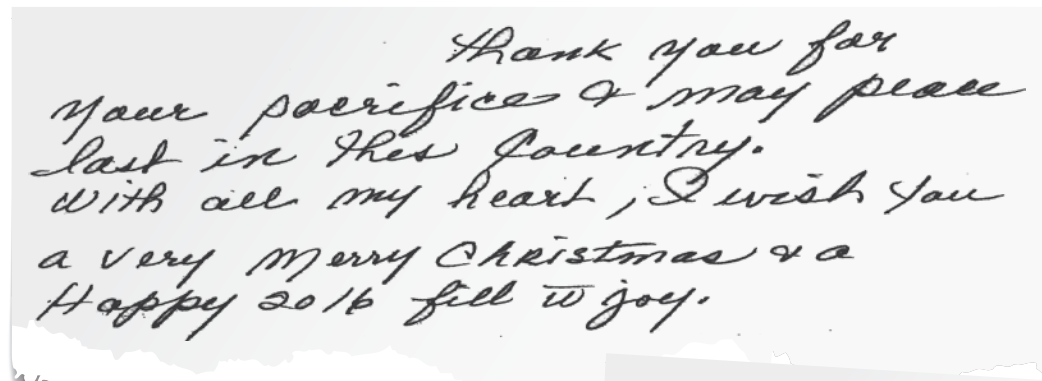 Thank you for
your sacrifices & may peace
last in this Country.
With all my heart, I wish you
a very Merry Christmas & a
Happy 2016 fill w joy.